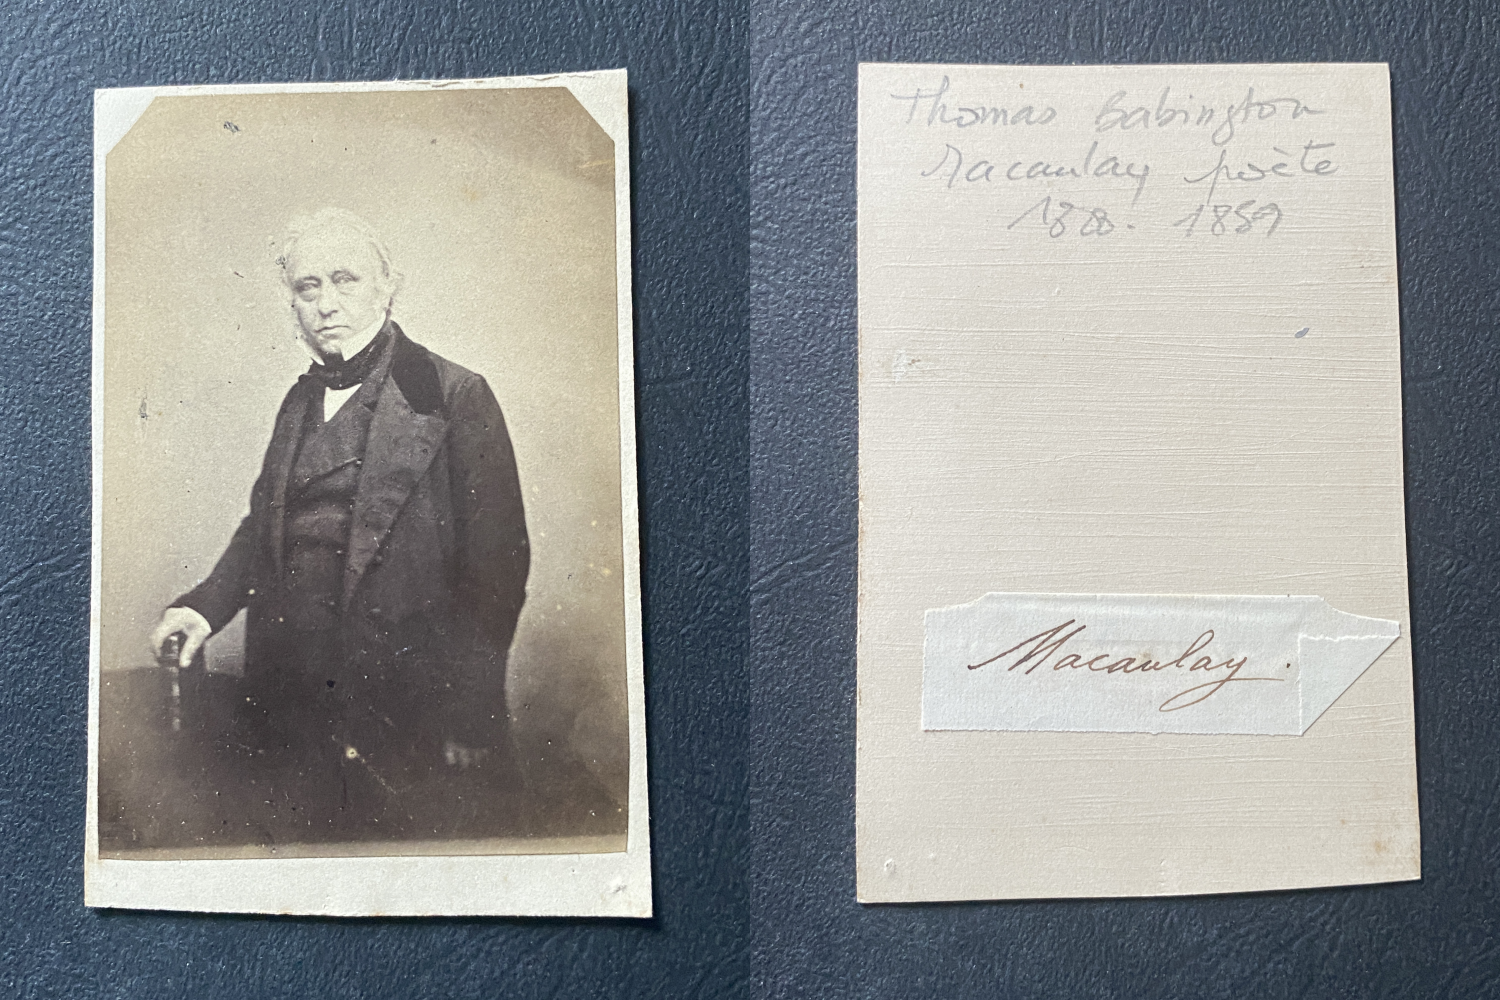 Thomas Babington
Macaulay poète
1800. 1859
Macaulay.